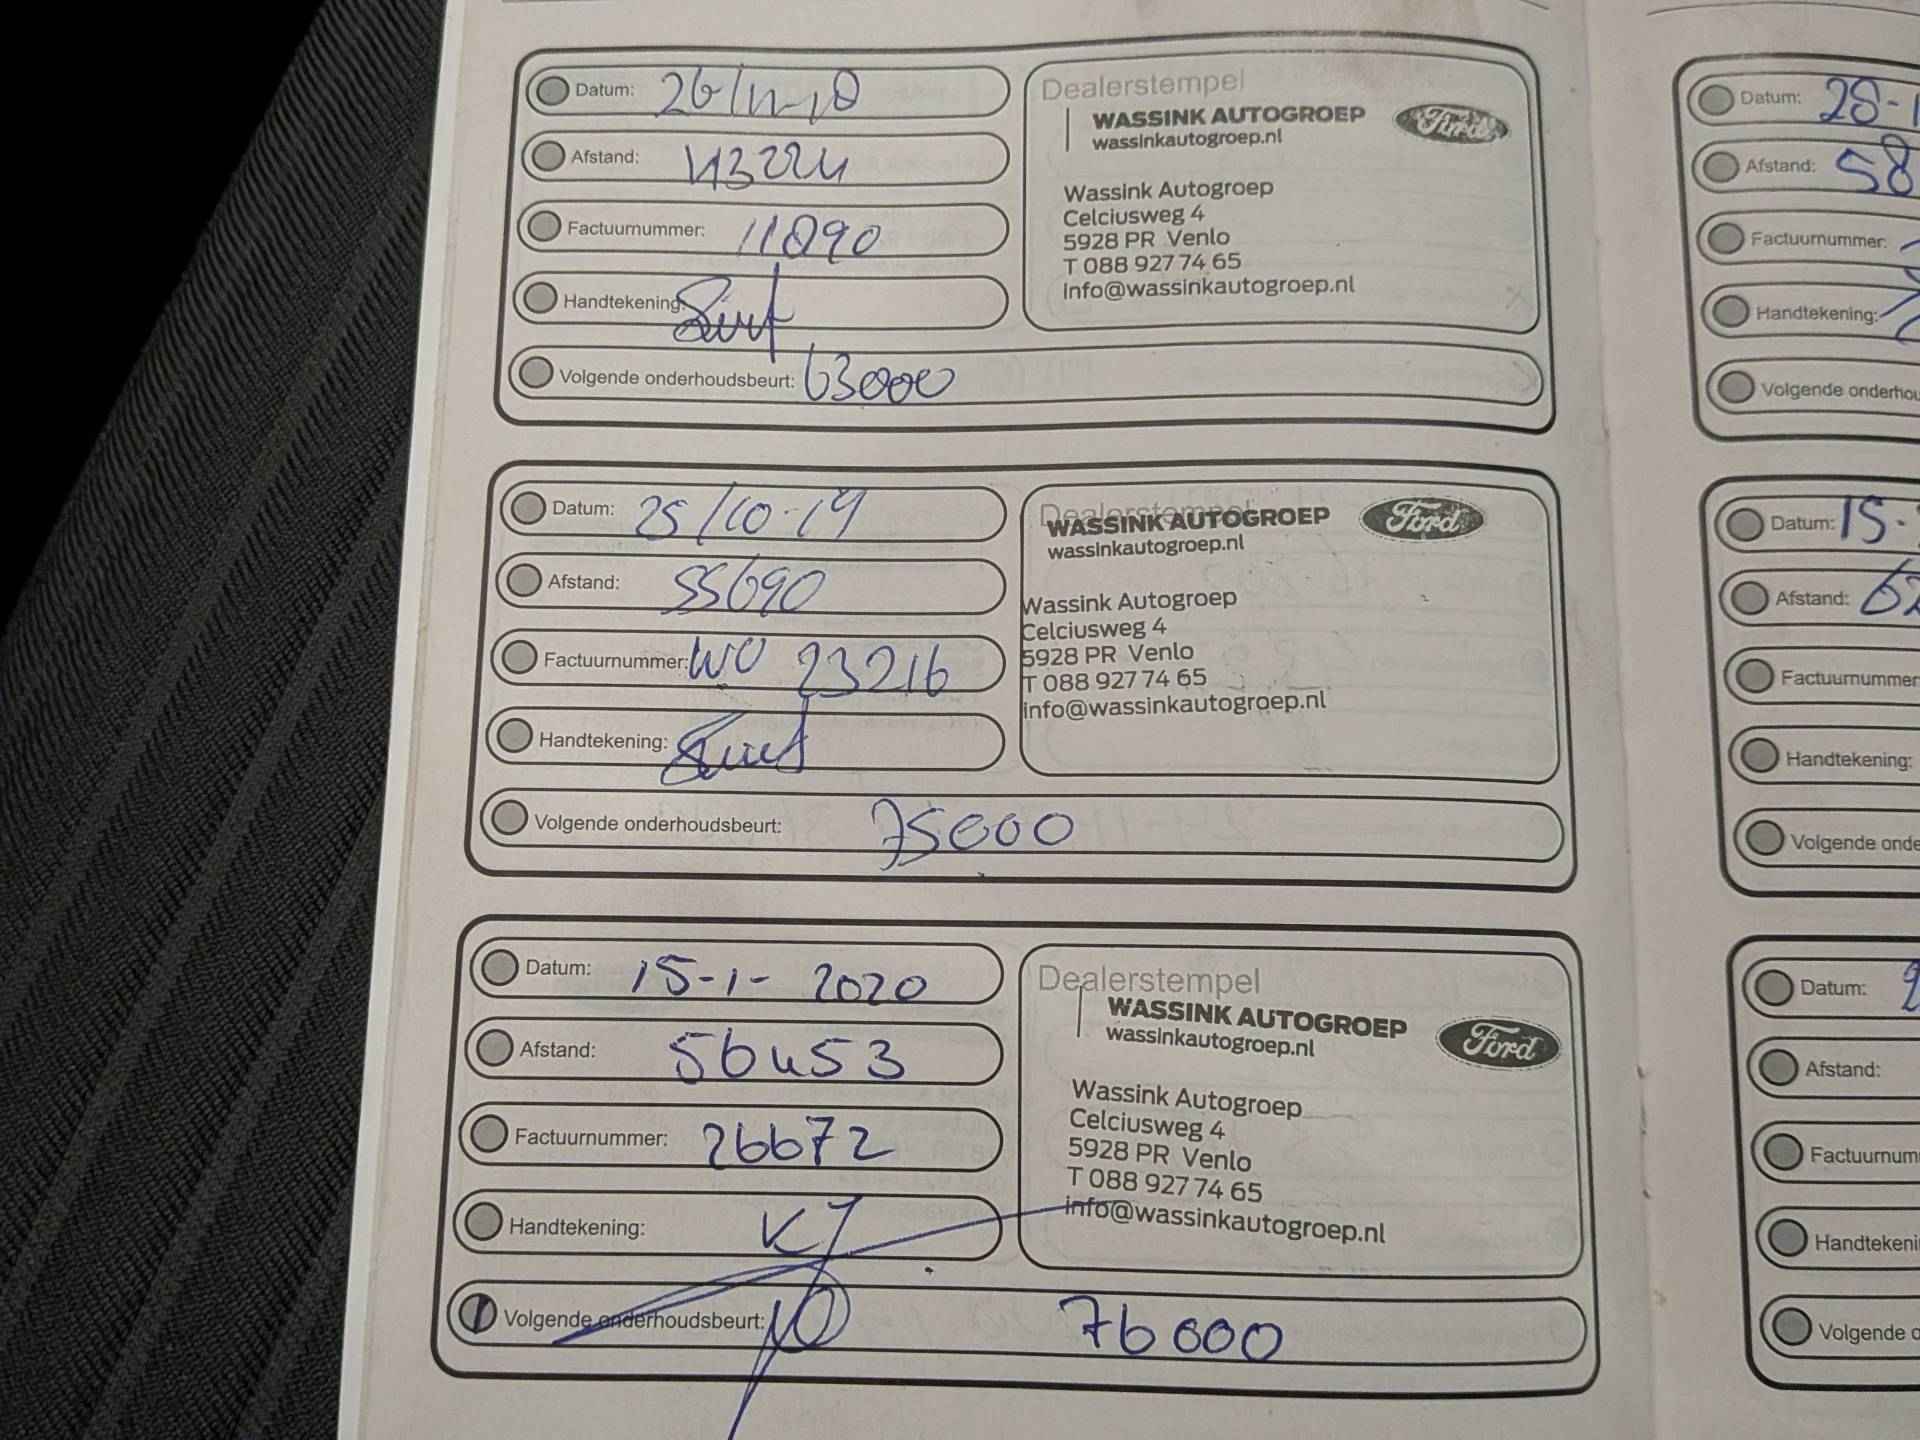 Datum: 26/11-18
Afstand: 43224
Factuurnummer: 11890
Handtekening:
Volgende onderhoudsbeurt: 63000
Dealerstempel
WASSINK AUTOGROEP
wassinkautogroep.nl
Ford
Wassink Autogroep
Celciusweg 4
5928 PR Venlo
T 088 927 74 65
info@wassinkautogroep.nl
Datum: 25/10-19
Afstand: 55690
Factuurnummer: WO 23216
Handtekening:
Volgende onderhoudsbeurt: 75000
Dealerstempel
WASSINK AUTOGROEP
wassinkautogroep.nl
Ford
Wassink Autogroep
Celciusweg 4
5928 PR Venlo
T 088 927 74 65
info@wassinkautogroep.nl
Datum: 15-1-2020
Afstand: 56453
Factuurnummer: 26672
Handtekening:
Volgende onderhoudsbeurt: 76000
Dealerstempel
WASSINK AUTOGROEP
wassinkautogroep.nl
Ford
Wassink Autogroep
Celciusweg 4
5928 PR Venlo
T 088 927 74 65
info@wassinkautogroep.nl
Datum: 28-1
Afstand: 58
Factuurnummer:
Handtekening:
Volgende onderhou
Datum: 15-
Afstand: 62
Factuurnummer
Handtekening:
Volgende onde
Datum:
Afstand:
Factuurnum
Handtekeni
Volgende o